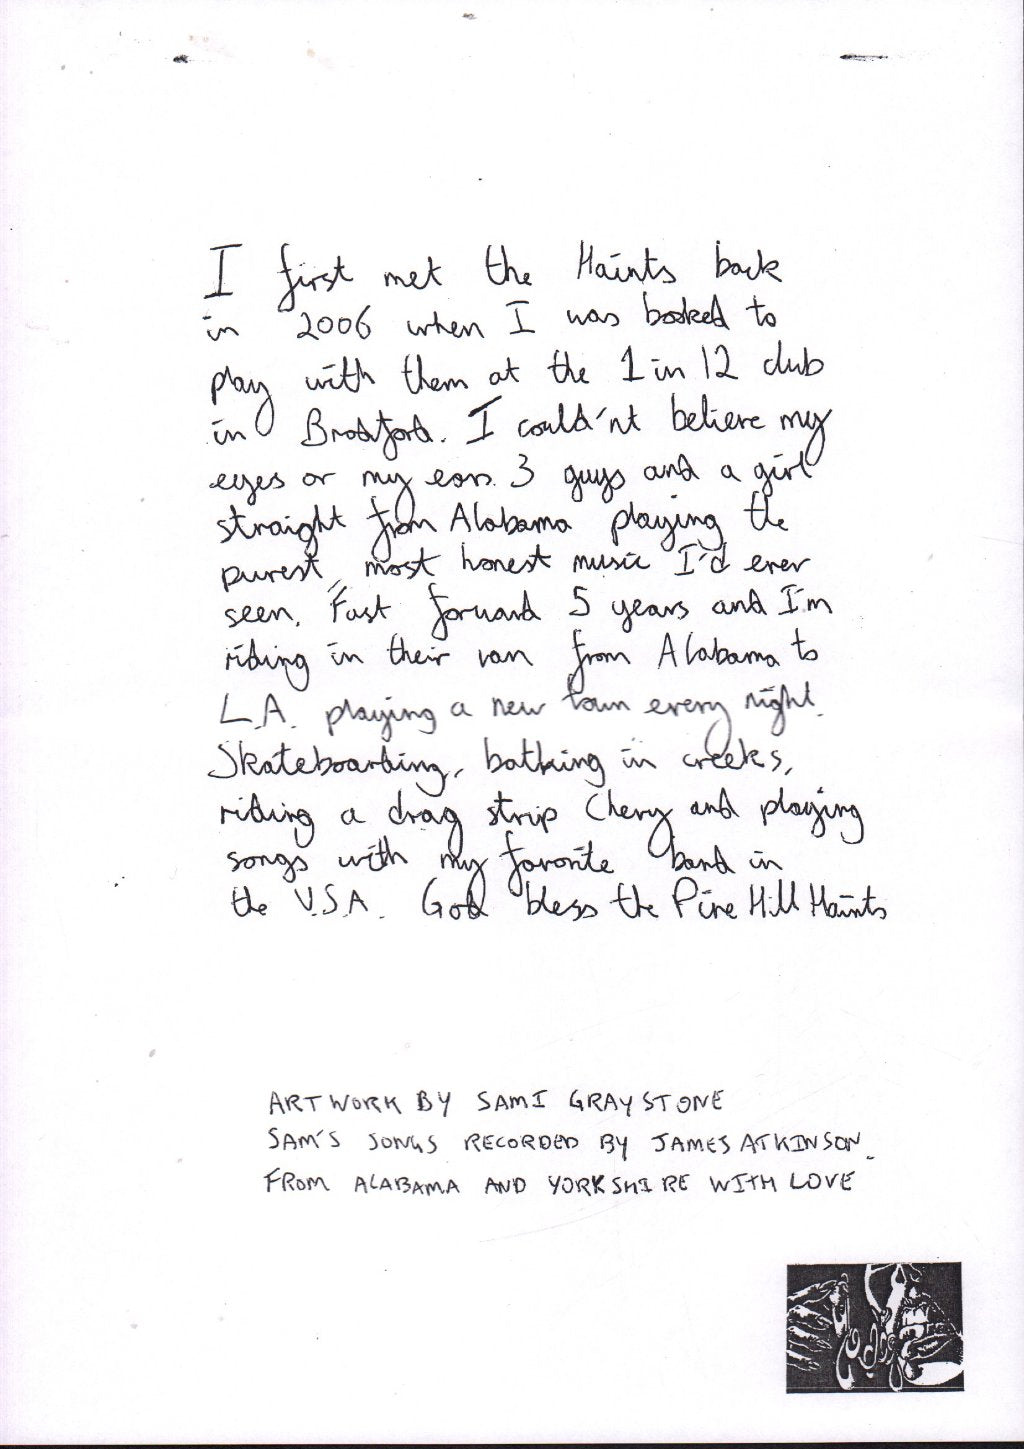 I first met the Haints back
in 2006 when I was booked to
play with them at the 1 in 12 club
in Bradford. I could'nt believe my
eyes or my ears. 3 guys and a girl
straight from Alabama playing the
purest, most honest music I'd ever
seen. Fast forward 5 years and I'm
riding in their van from Alabama to
L.A. playing a new town every night.
Skateboarding, bathing in creeks,
riding a drag strip Chevy and playing
songs with my favorite band in
the U.S.A. God bless the Pine Hill Haints
ARTWORK BY SAMI GRAYSTONE
SAM'S SONGS RECORDED BY JAMES ATKINSON.
FROM ALABAMA AND YORKSHIRE WITH LOVE